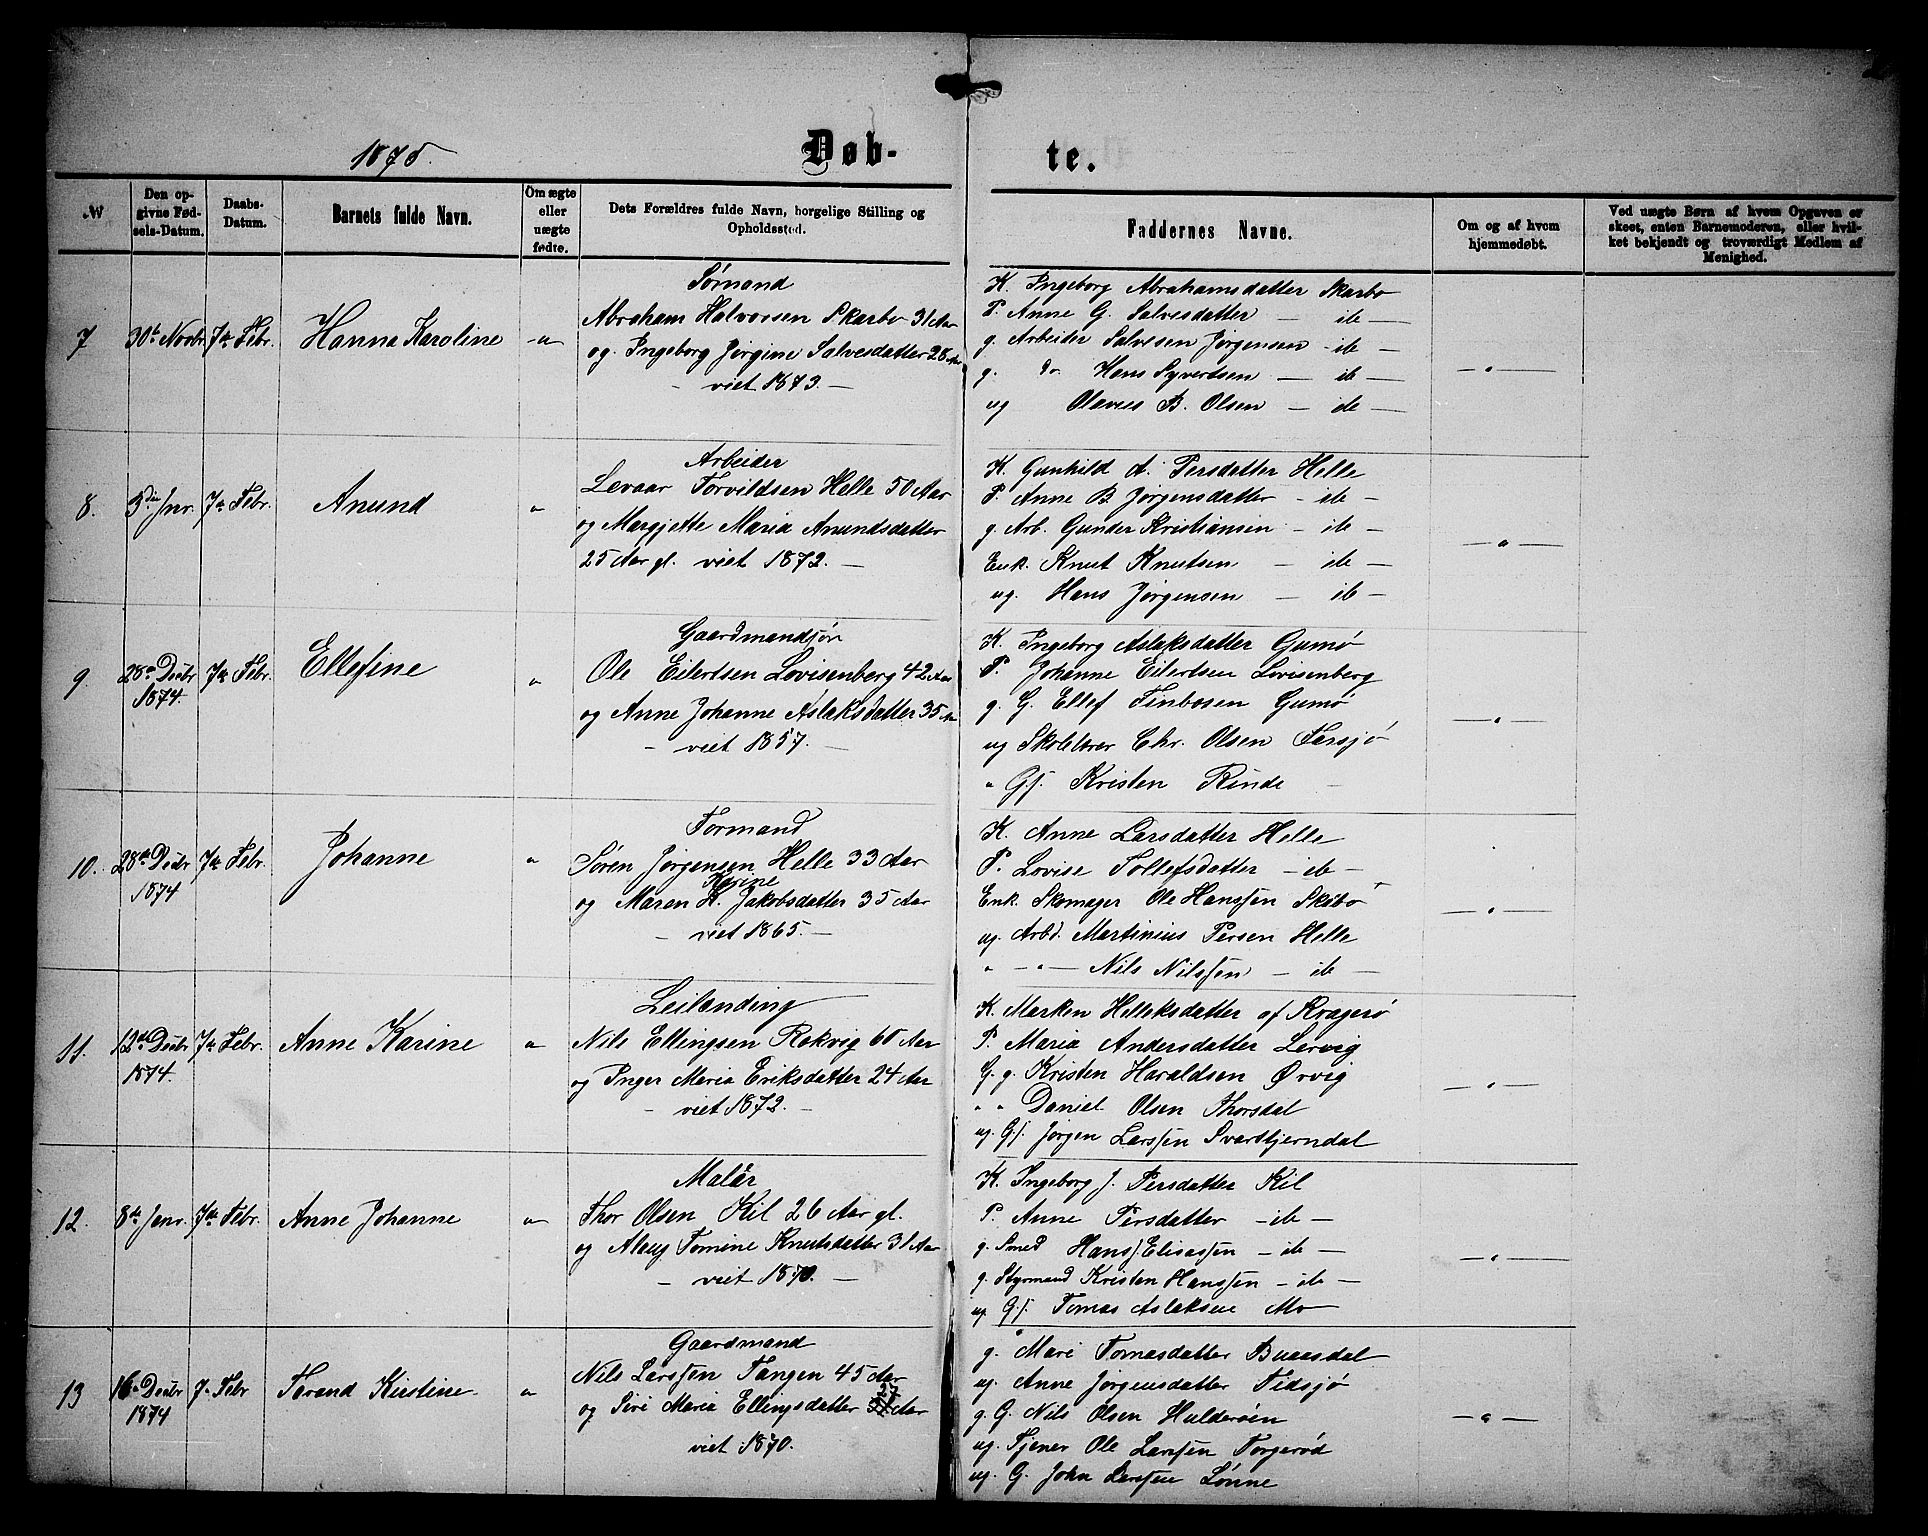 1875.
Døb-
te.
№
Den op-
givne Fød-
sels-Datum.
Daabs-
Datum.
Barnets fulde Navn.
Om ægte
eller
uægte
fødte.
Dets Forældres fulde Navn, borgelige Stilling og
Opholdssted.
Faddernes Navne.
Om og af hvem
hjemmedøbt.
Ved uægte Børn af hvem Opgaven er
skeet, enten Barnemoderen, eller hvil-
ket bekjendt og troværdigt Medlem af
Menighed.
7
30te Novbr.
7de Febr.
Hanna Karoline
Sømand
Abraham Halvorsen Skarbo 31 Aar
og Ingeborg Jørgine Salvesdatter 28 Aar
– viet 1873. –
K. Ingeborg Abrahamsdatter Skarbo
P. Anne G. Salvesdatter – ib –
g. Arbeider Salvesen Jørgensen – ib –
g. do. Hans Syvertsen – ib –
ug Olaves B. Olsen – ib –
8.
3die Jnr.
7de Febr.
Anund
Arbeider
Levaar Torvildsen Helle 50 Aar
og Margjette Maria Anundsdatter
25 Aar gl. viet 1872. –
K. Gunhild A. Persdatter Helle
P. Anne B. Jørgensdatter – ib –
g. Arb. Gunder Kristiansen – ib –
Enk. Knut Knutsen – ib –
ug. Hans Jørgensen – ib –
9.
28de Decbr
1874.
7de Febr.
Ellefine
Gaardmandsøn
Ole Eilertsen Lovisenberg 42 Aar
og Anne Johanne Aslaksdatter 35 Aar
– viet 1857. –
K. Ingeborg Aslaksdatter Gumø
P. Johanne Eilertsen Lovisenberg
g. G. Ellef Finbosen Gumø
ug Skolelærer Chr. Olsen Farsjø
" Gs. Kristen Rinde –
10.
28de Decbr
1874
7de Febr.
Johanne
Formand
Søren Jørgensen Helle 33 Aar
Karine
og Maren K. Jakobsdatter 35 Aar
– viet 1865. –
K. Anne Larsdatter Helle
P. Lovise Tollefsdatter – ib –
Enk. Skomager Ole Hanssen Skibø
ug. Arbd. Martinius Persen Helle
" – " – Nils Nilssen – ib –
11.
12te Decbr
1874.
7de Febr.
Anne Karine
Leilending
Nils Ellingsen Rakvig 60 Aar
og Inger Maria Eriksdatter 24 Aar
– viet 1872. –
K. Marken Helleksdatter af Kragerø
P. Maria Andersdatter Lervig
G. g. Kristen Haraldsen Ørvig
" " Daniel Olsen Thorsdal
ug. Gs. Jørgen Larssen Svartkjerndal
12.
8de Janr.
7de Febr.
Anne Johanne
Maler
Thor Olsen Kil 26 Aar gl.
og Alaug Tomine Knutsdatter 31 Aar
– viet 1870. –
K. Ingeborg J. Persdatter Kil
P. Anne Persdatter – ib –
g. Smed Hans J. Eliassen – ib –
g. Styrmand Kristen Hanssen – ib –
ug. Gs. Tomas Aslaksen Mo –
13
16de Decbr
1874
7de Febr
Terand Kirstine
Gaardmand
Nils Larssen Tangen 45 Aar
og Siri Maria Ellingsdatter Aar
viet 1870.
g. Mari Tomasdatter Buaasdal
ug. Anne Jørgensdatter Tidsjø
g. G. Nils Olsen Hulderøen
ug. Tjener Ole Larssen Torgerød
ug. G. John Larssen Lønne